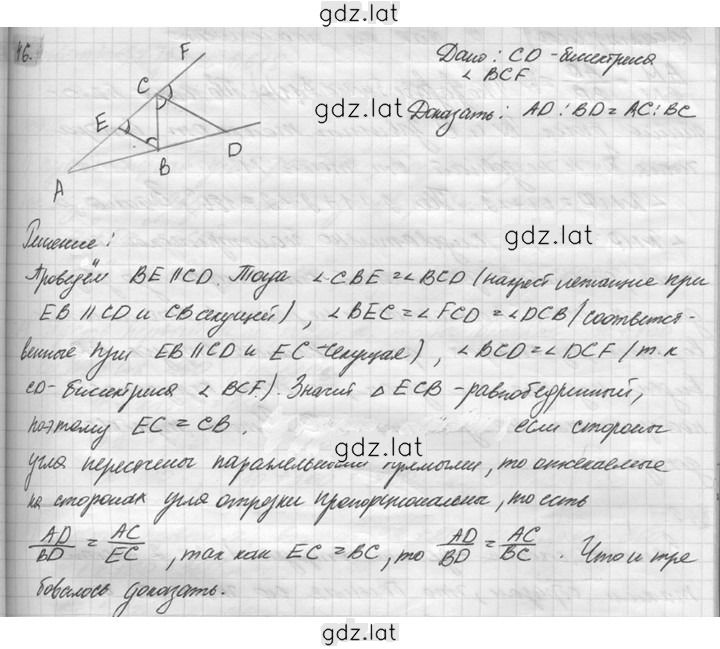 gdz.lat
46.
F
C
E
B
D
A
Дано: CD - биссектриса
∠ BCF
gdz.lat
Доказать: AD : BD = AC : BC
gdz.lat
Решение:
Проведём BE || CD. Тогда ∠CBE = ∠BCD (накрест лежащие при
EB || CD и CB секущей), ∠BEC = ∠FCD = ∠DCB (соответст-
венные при EB || CD и EC - секущая), ∠BCD = ∠DCF (т.к
CD - биссектриса ∠ BCF). Значит △ ECB - равнобедренный,
поэтому EC = CB. если стороны
gdz.lat
угла пересечены параллельными прямыми, то отсекаемые
на сторонах угла отрезки пропорциональны, то есть
AD/BD = AC/EC, так как EC = BC, то AD/BD = AC/BC. Что и тре
бовалось доказать.
gdz.lat